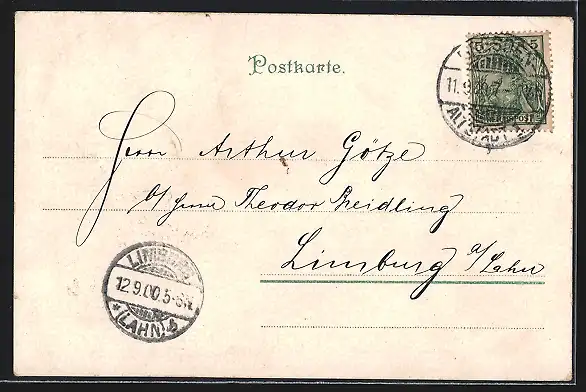 Postkarte.
5
DRESDEN
11.9.00.7-
ALTSTADT
Herrn Arthur Götze
b/ Herrn Theodor Neidling
Limburg a/Lahn
LIMBURG
12.9.00.5-6N.
*(LAHN)*